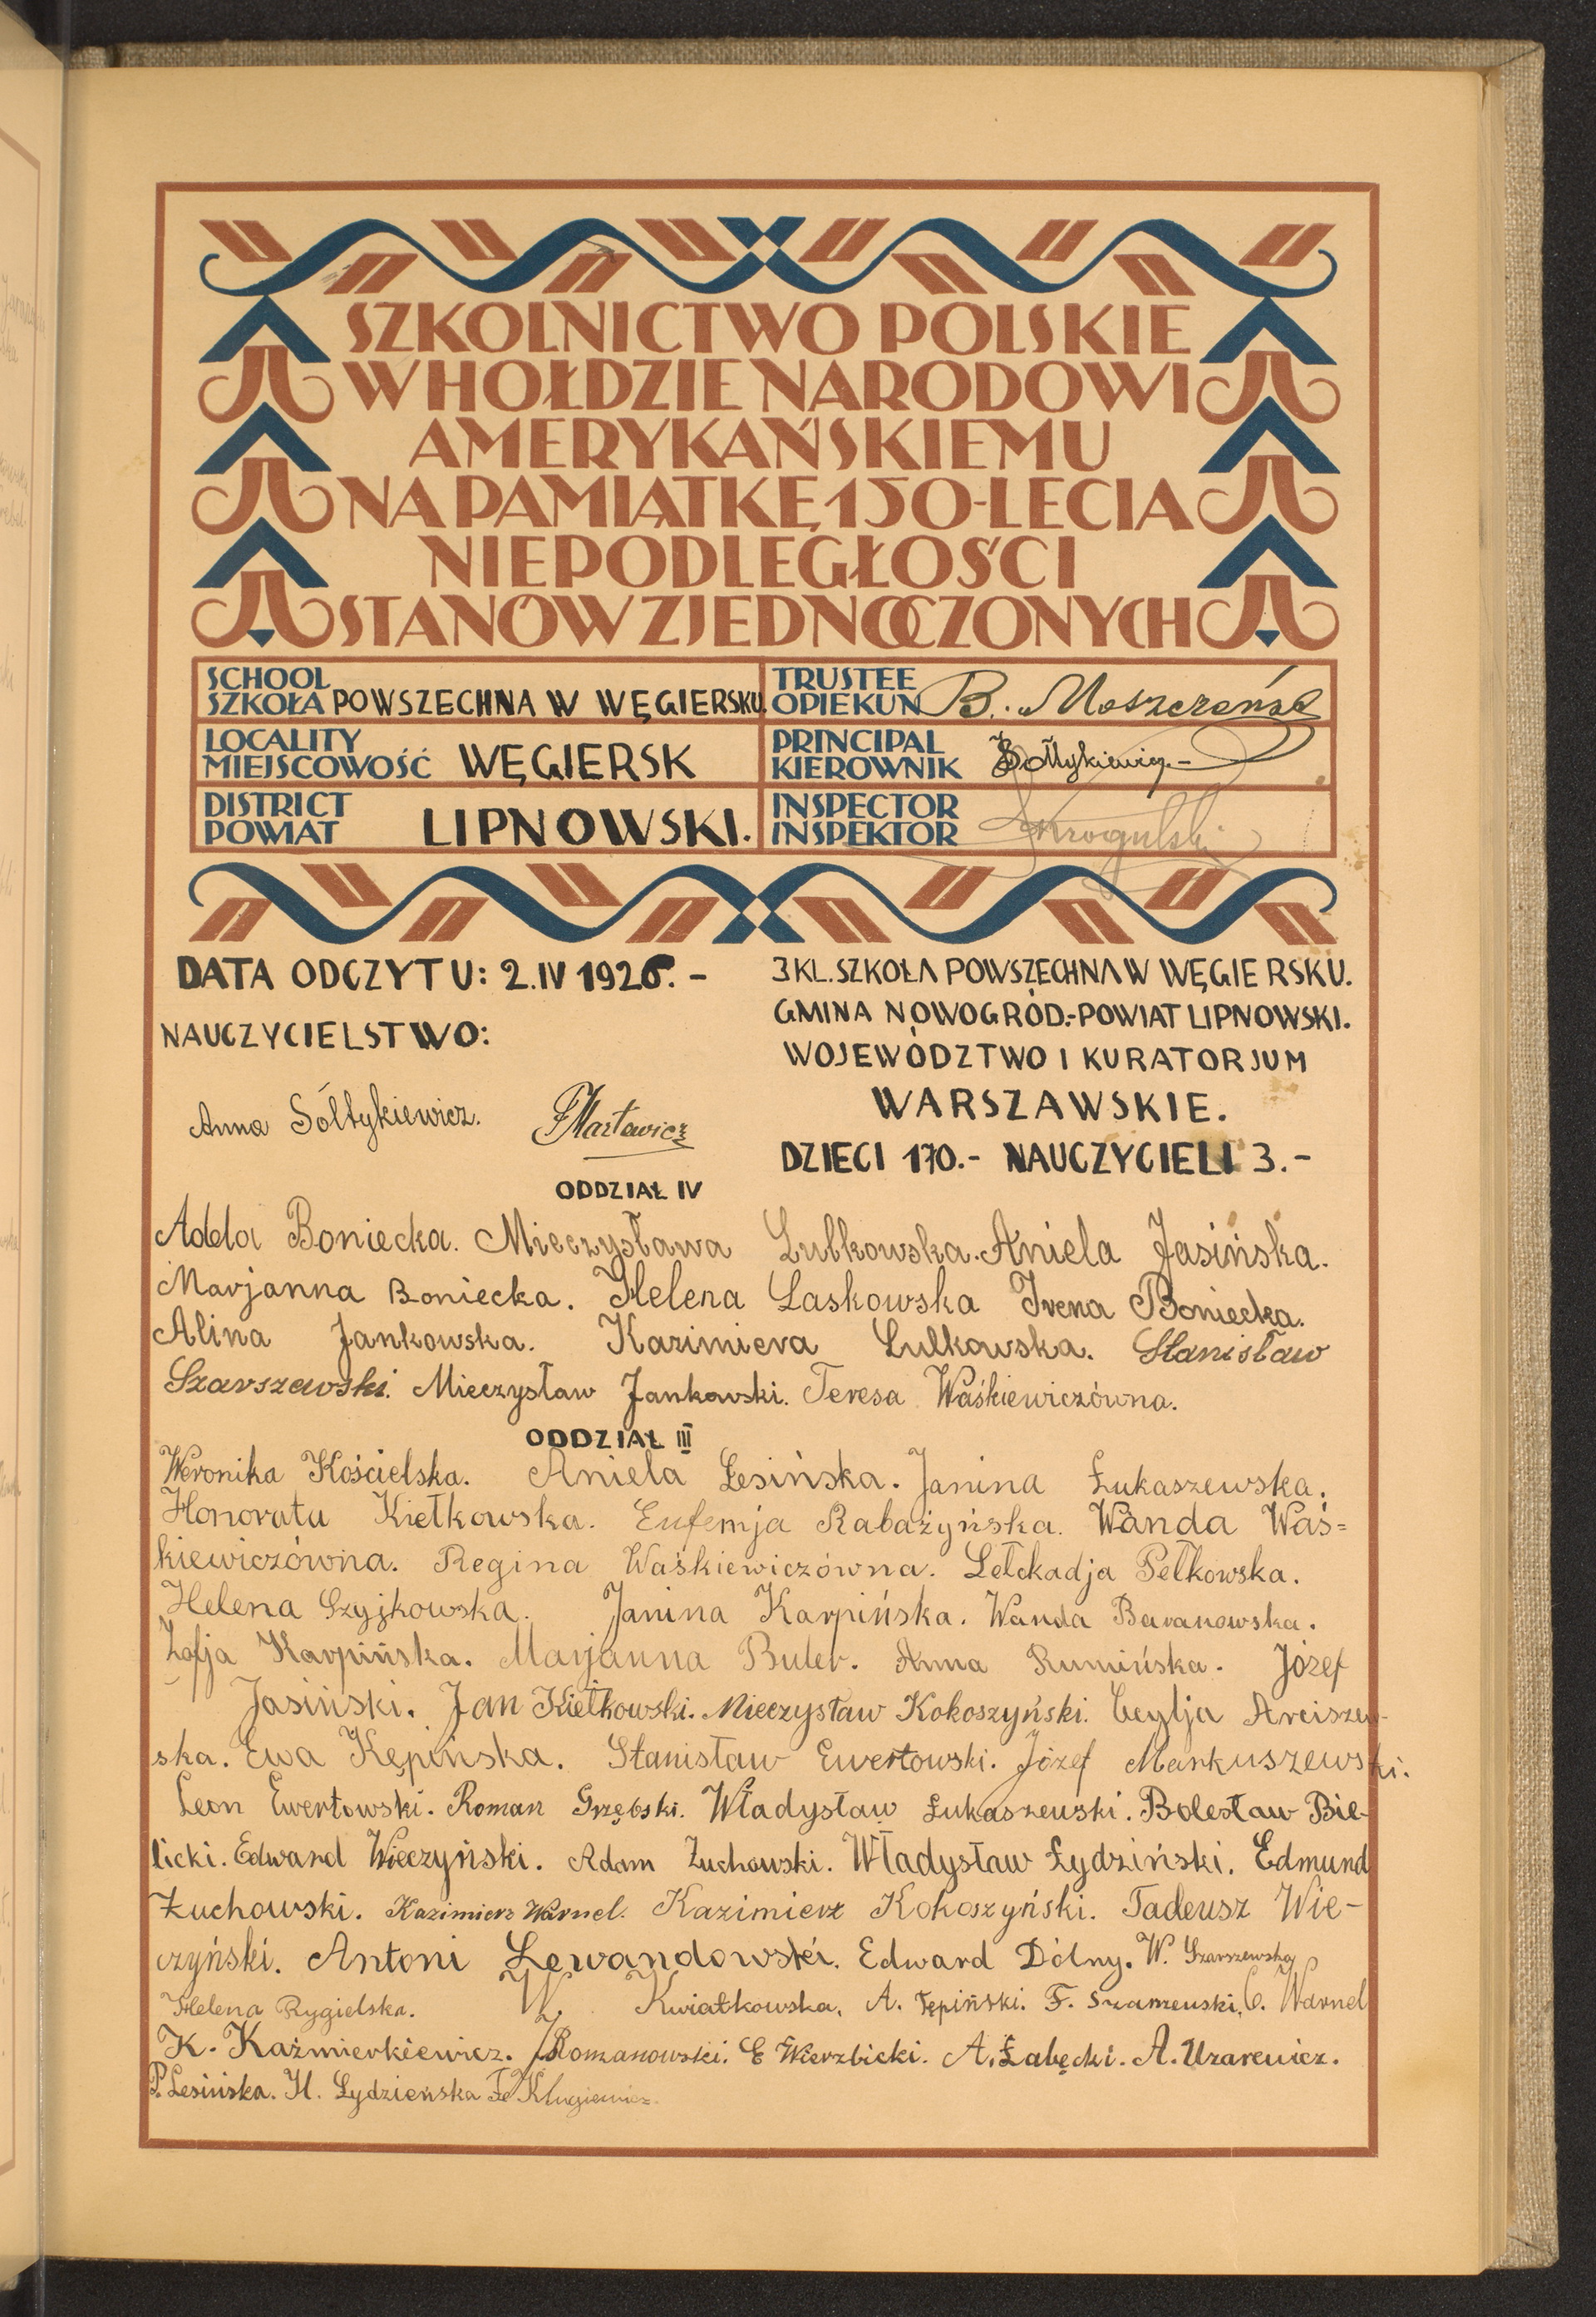 SZKOLNICTWO POLSKIE
W HOŁDZIE NARODOWI
AMERYKAŃSKIEMU
NA PAMIĄTKĘ 150-LECIA
NIEPODLEGŁOŚCI
STANÓW ZJEDNOCZONYCH
SCHOOL
SZKOŁA POWSZECHNA W WĘGIERSKU.
TRUSTEE
OPIEKUN B. Moszczeńsk
LOCALITY
MIEJSCOWOŚĆ WĘGIERSK
PRINCIPAL
KIEROWNIK Sołtykiewicz.-
DISTRICT
POWIAT LIPNOWSKI.
INSPECTOR
INSPEKTOR
DATA ODCZYTU: 2.IV 1926.-
NAUCZYCIELSTWO:
Anna Sółtykiewicz.
3 KL. SZKOŁA POWSZECHNA W WĘGIERSKU.
GMINA NOWOGRÓD.-POWIAT LIPNOWSKI.
WOJEWÓDZTWO I KURATORJUM
WARSZAWSKIE.
DZIECI 170.- NAUCZYCIELI 3.-
ODDZIAŁ IV
Adela Boniecka. Mieczysława Lulkowska. Aniela Jasińska.
Marjanna Boniecka. Helena Laskowska Irena Boniecka.
Alina Jankowska. Kazimiera Lulkowska. Stanisław
Szarszewski. Mieczysław Jankowski. Teresa Waśkiewiczówna.
ODDZIAŁ III
Weronika Kościelska. Aniela Lesińska. Janina Łukaszewska.
Honorata Kiełkowska. Eufemja Rabażyńska. Wanda Waś=
kiewiczówna. Regina Waśkiewiczówna. Pełkowska.
Helena Szyjkowska. Janina Karpińska. Wanda Baranowska.
Zofja Karpińska. Marjanna Buler. Anna Rumińska. Józef
Jasiński. Jan Kiełkowski. Mieczysław Kokoszyński. Cecylja Arciszew-
ska. Ewa Kępińska. Stanisław Ewertowski. Józef Markuszewski.
Leon Ewertowski. Roman Grzębski. Władysław Łukaszewski. Bolesław Bie-
licki. Edward Wieczyński. Adam Żuchowski. Władysław Łydziński. Edmund
Żuchowski. Kazimierz Warnel. Kazimierz Kokoszyński. Tadeusz Wie-
czyński. Antoni Lewandowski. Edward Dólny. W. Szarszewska
Helena Rygielska. W. Kwiatkowska. A. Tępiński. F. C. Warnel
K. Kaźmierkiewicz. Romanowski. E Wierzbicki. A. Łabęcki. A. Uzarewicz.
P. Lesińska. H. Lydzieńska Klugiewicz.